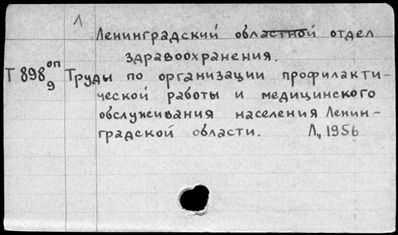 Л
Ленинградский областной отдел
здравоохранения.
Т 898 оп 9 Труды по организации профилакти-
ческой работы и медицинского
обслуживания населения Ленин-
градской области. Л., 1956